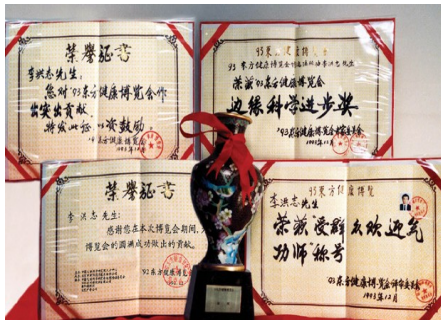 荣誉证书
李洪志先生:
您对'93东方健康博览会作
出突出贡献,
特发此证,以资鼓励。
'93东方健康博览会
1993年12月
93东方健康博览会
荣获'93东方健康博览会
边缘科学进步奖
'93东方健康博览会评审委员会
1993年12月
荣誉证书
李洪志先生:
感谢您在本次博览会期间,
博览会的圆满成功做出的贡献。
'92东方健康博览会
93东方健康博览
李洪志先生
荣获"受群众欢迎气
功师"称号
'93东方健康博览会评审委员会
1993年12月